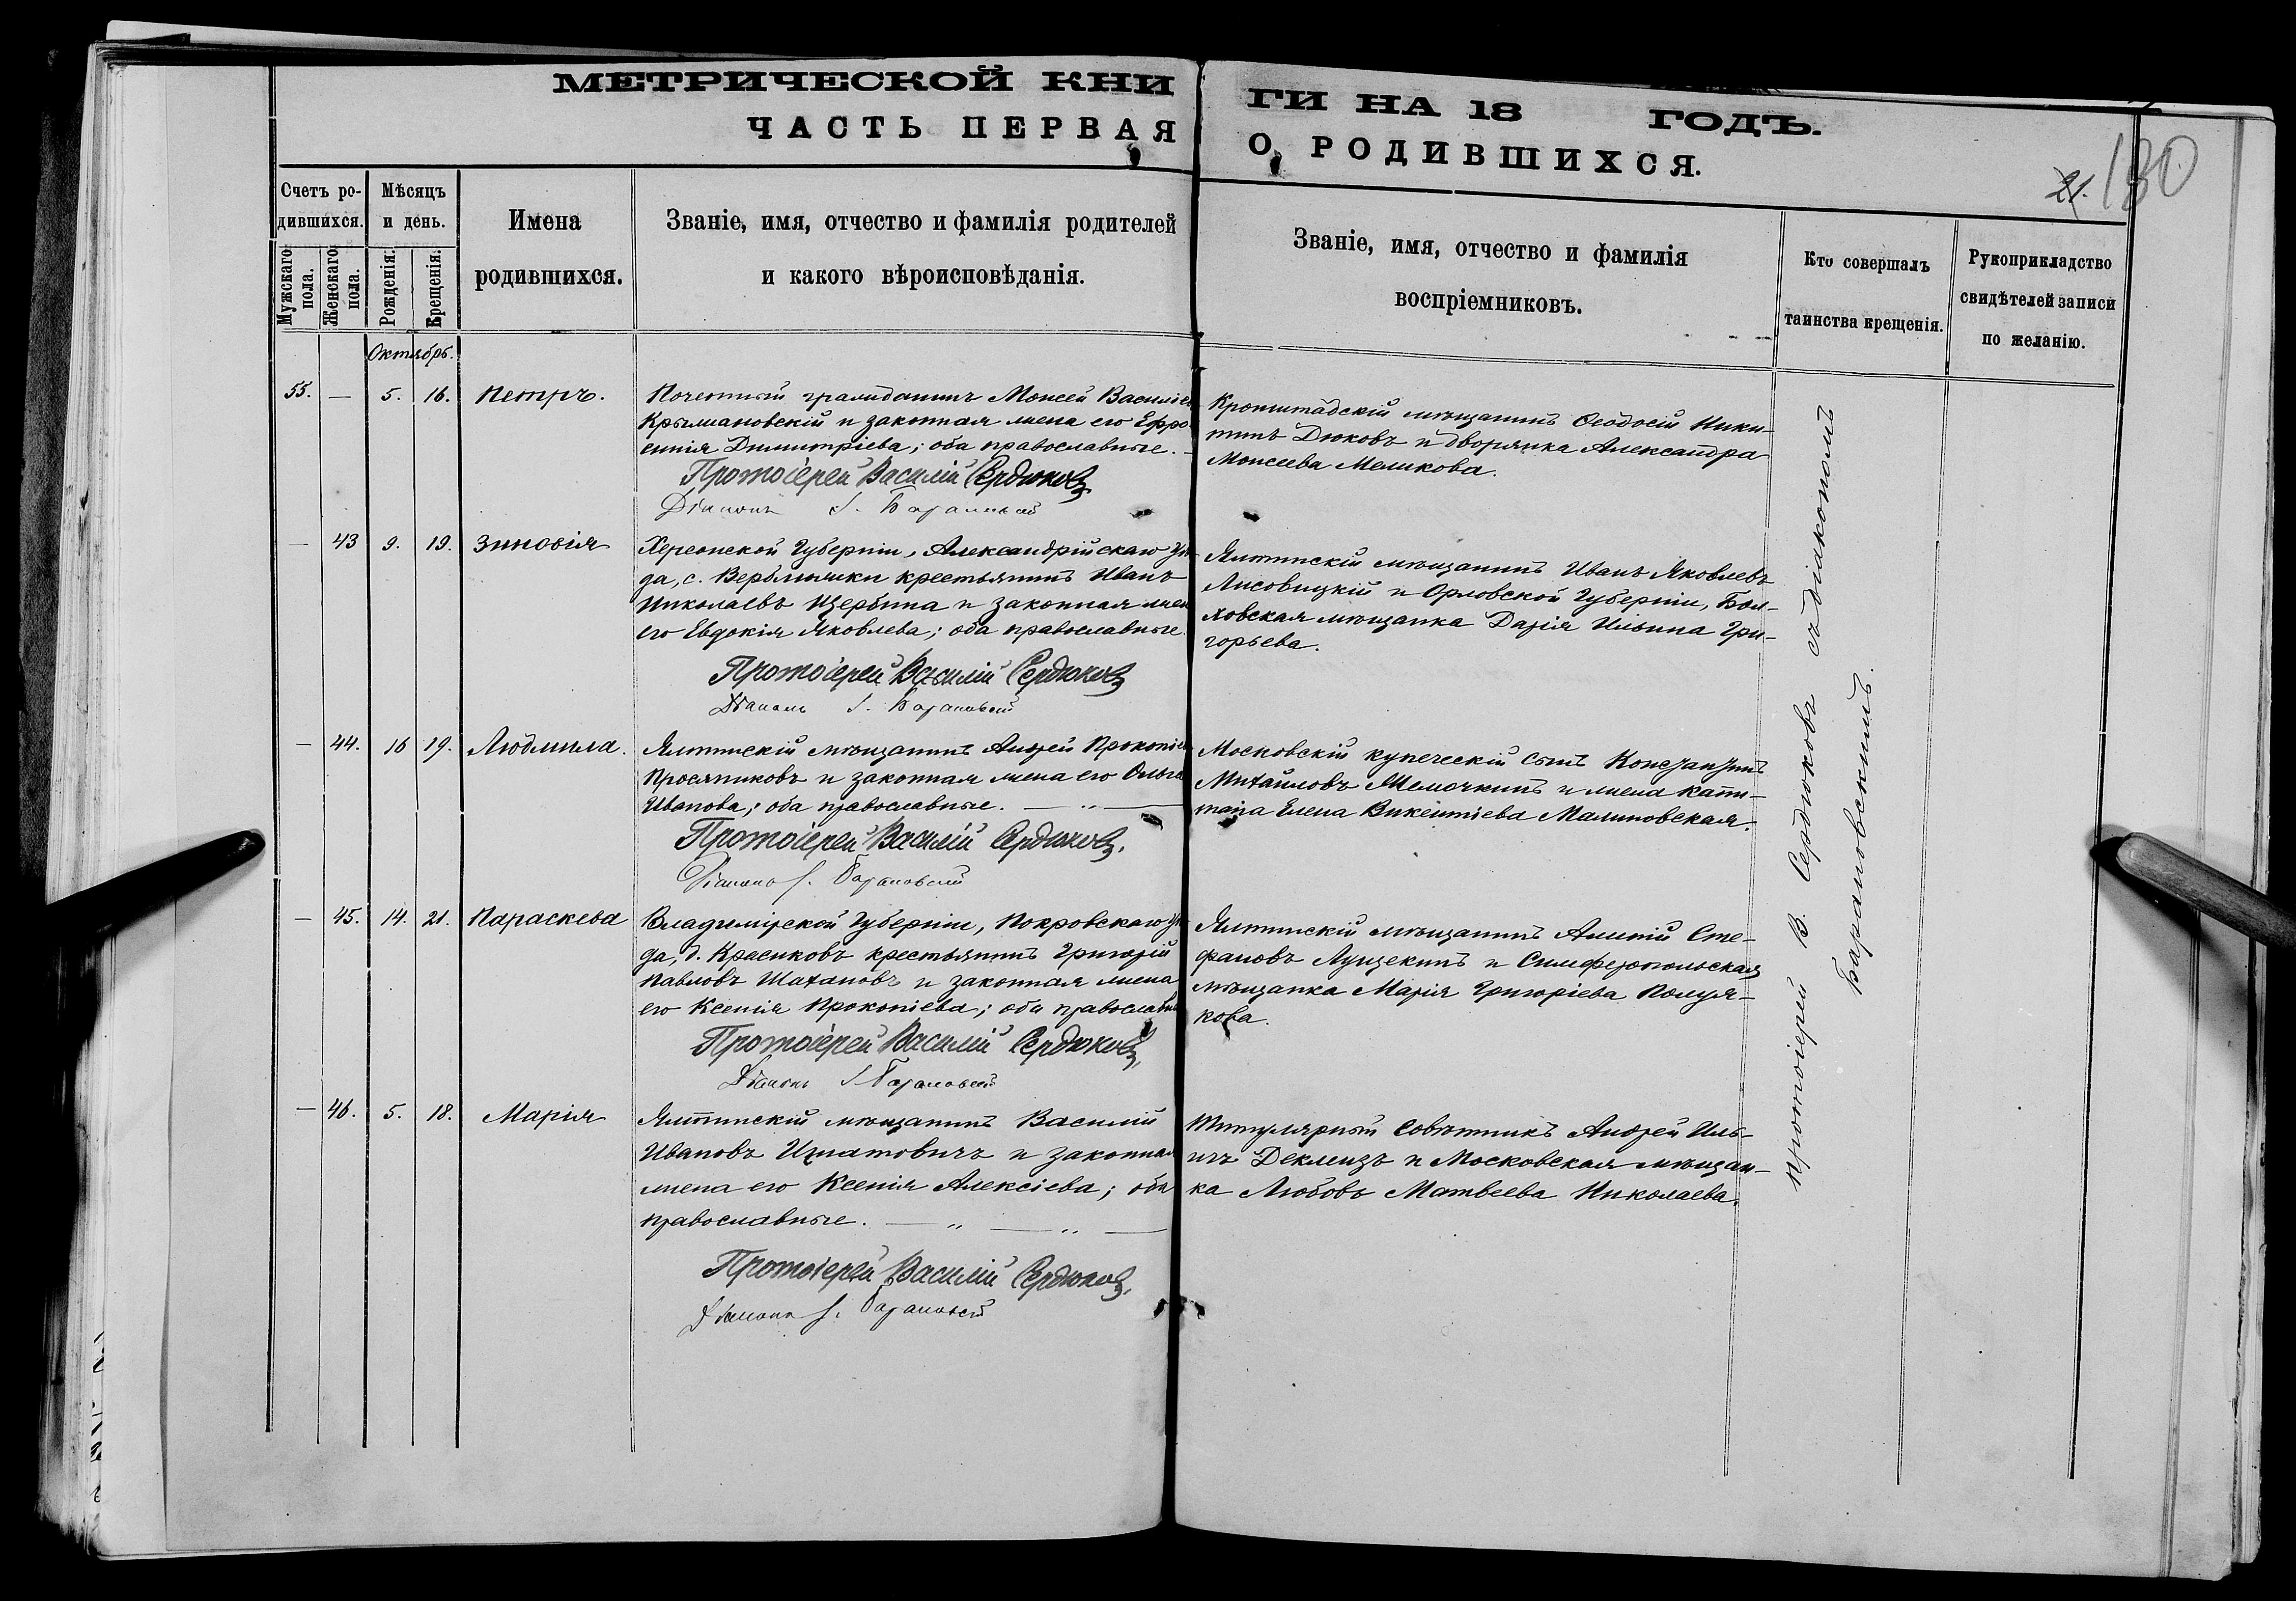 МЕТРИЧЕСКОЙ КНИ
ЧАСТЬ ПЕРВАЯ
ГИ НА 18 ГОДЪ.
О РОДИВШИХСЯ.
21. 130
Счетъ ро-
дившихся.
Мужскаго пола.
Женскаго пола.
Мѣсяцъ
и день.
Рожденія:
Крещенія:
Имена
родившихся.
Званіе, имя, отчество и фамилія родителей
и какого вѣроисповѣданія.
Званіе, имя, отчество и фамилія
воспріемниковъ.
Кто совершалъ
таинства крещенія.
Рукоприкладство
свидѣтелей записи
по желанію.
Октябрь.
55. — 5. 16. Петръ.
Почетный гражданинъ Моисей Василіев
Крыжановскій и законная жена его Ефро
синія Димитріева; оба православные.
Протоіерей Василій Сердюковъ
Діаконъ І. Барановскій
Кронштадскій мѣщанинъ Ѳеодосій Ники-
тинъ Дюковъ и дворянка Александра
Моисеева Меликова.
— 43 9. 19. Зиновія
Херсонской Губерніи, Александрійскаго Уѣ
да, с. Верблюжки крестьянинъ Иванъ
Николаевъ Щербина и законная жен
его Евдокія Яковлева; оба православные.
Протоіерей Василій Сердюковъ
Діаконъ І. Барановскій
Ялтинскій мѣщанинъ Иванъ Яковлевъ
Лисовицкій и Орловской Губерніи, Бол-
ховская мѣщанка Дарія Ильина Гри-
горьева.
— 44. 16 19. Людмила.
Ялтинскій мѣщанинъ Андрей Прокопіев
Просяниковъ и законная жена его Ольга
Иванова; оба православные. — „ —
Протоіерей Василій Сердюковъ.
Діаконъ І. Барановскій
Московскій купеческій сынъ Константинъ
Михайловъ Шемочкинъ и жена капи-
тана Елена Викентіева Малиновская.
— 45. 14. 21. Параскева
Владимірской Губерніи, Покровскаго Уѣ
да, д. Красиковъ крестьянинъ Григорій
Павловъ Шахановъ и законная жена
его Ксенія Прокопіева; оба православн
Протоіерей Василій Сердюковъ,
Діаконъ І. Барановскій
Ялтинскій мѣщанинъ Алипій Сте-
фановъ Лущекинъ и Симферопольская
мѣщанка Марія Григоріева Полуя-
кова.
— 46. 5. 18. Марія
Ялтинскій мѣщанинъ Василій
Ивановъ Игнатовичъ и законная
жена его Ксенія Алексіева; оба
православные. — „ — „ —
Протоіерей Василій Сердюковъ.
Діаконъ І. Барановскій
Титулярный Совѣтникъ Андрей Иль-
ичъ Деклензъ и Московская мѣщан-
ка Любовь Матвеева Николаева.
Протоіерей В. Сердюковъ съ діакономъ
Барановскимъ.